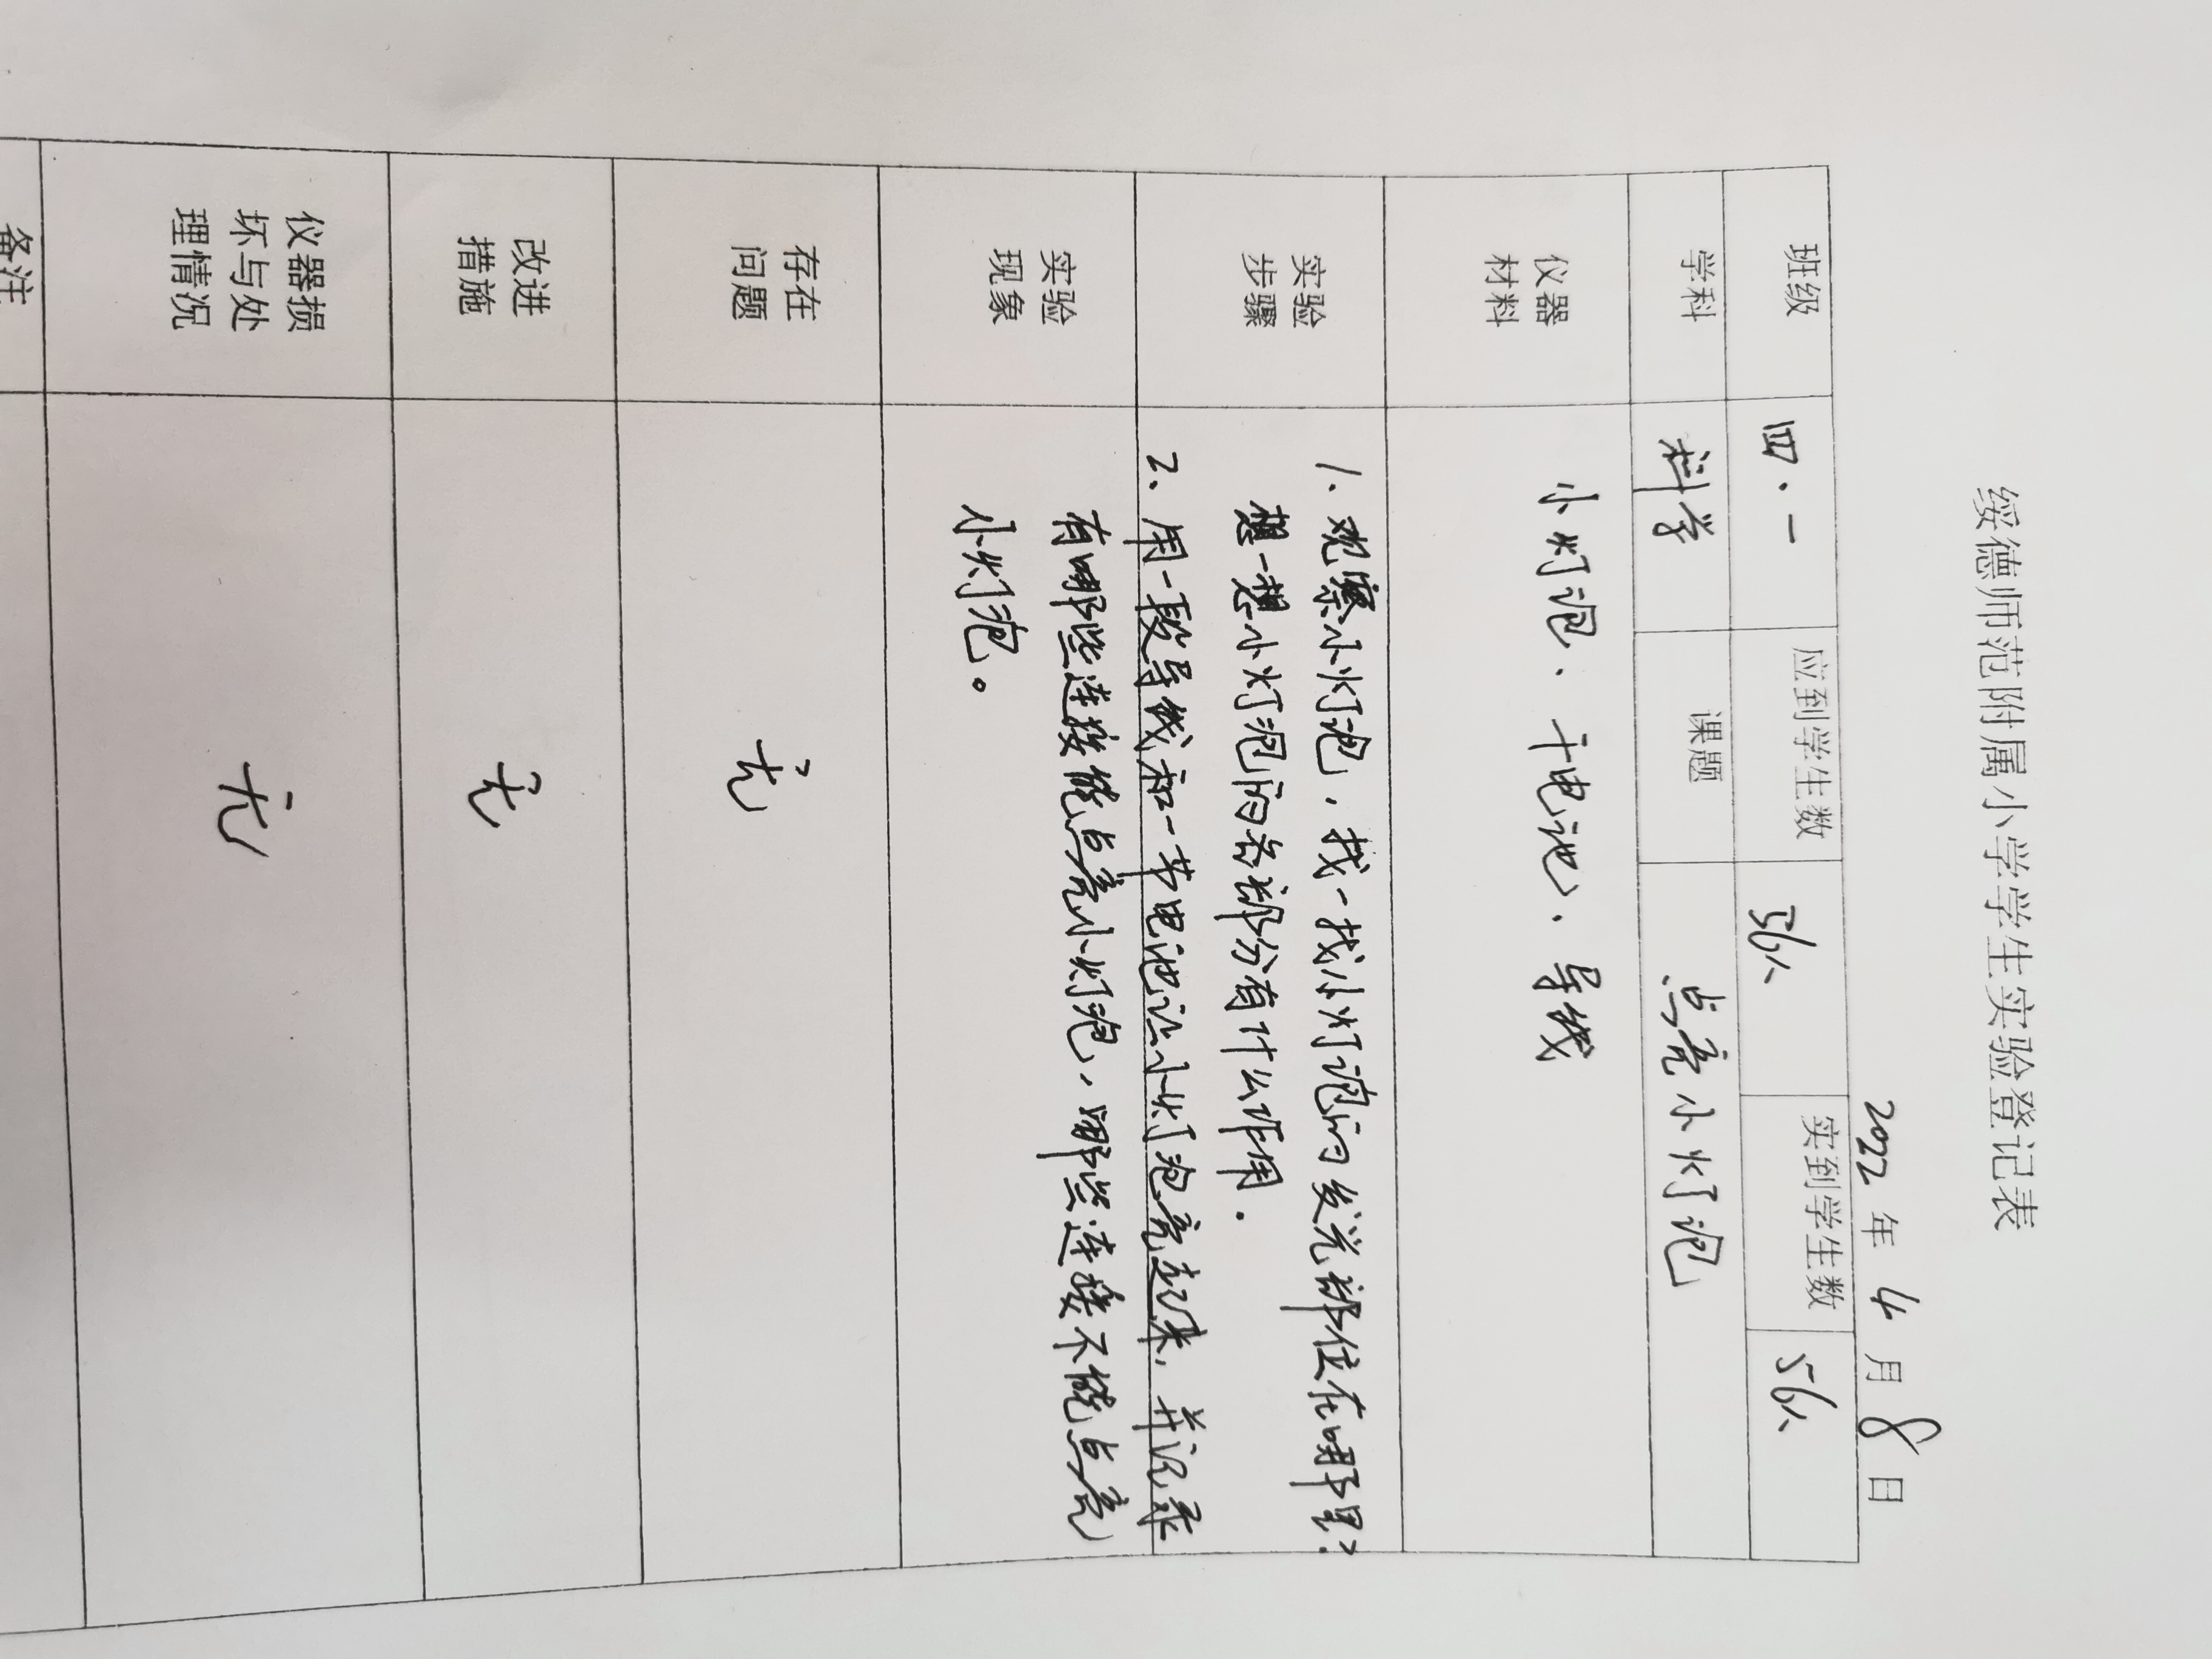 绥德师范附属小学学生实验登记表
2022 年 4 月 8 日
班级 四·一 应到学生数 56人 实到学生数 56人
学科 科学 课题 点亮小灯泡
仪器
材料
小灯泡、干电池、导线
实验
步骤
1、观察小灯泡，找一找小灯泡的发光部位在哪里？
想一想小灯泡的各部分有什么作用。
2、用一段导线和一节电池让小灯泡亮起来，并记录
实验
现象
有哪些连接能点亮小灯泡，哪些连接不能点亮
小灯泡。
存在
问题
无
改进
措施
无
仪器损
坏与处
理情况
无
备注